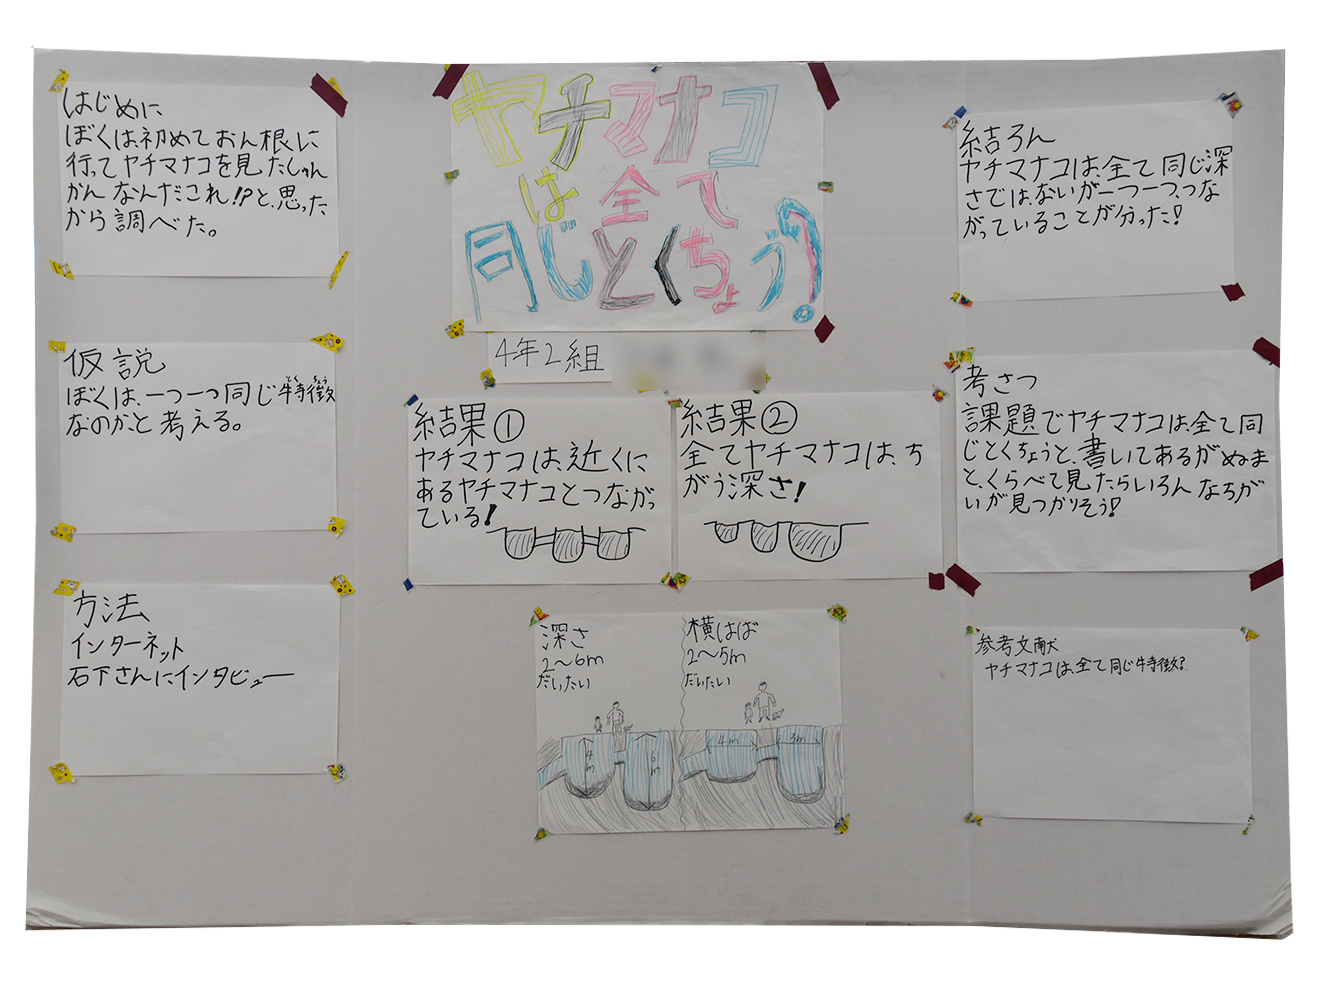 はじめに
ぼくは、初めておん根に
行ってヤチマナコを見たしゅん
かんなんだこれ!?と、思った
から調べた。
仮説
ぼくは、一つ一つ同じ特徴
とく ちょう
なのか、と考える。
方法
インターネット
石下さんにインタビュー
ヤチマナコ
は全て
同じとくちょう?
4年2組
結果①
ヤチマナコは、近くに
あるヤチマナコとつながっ
ている!
結果②
全てヤチマナコは、ち
がう深さ!
深さ
2〜6m
だいたい
横はば
2〜5m
だいたい
4m
6m
4m
3m
結ろん
ヤチマナコは、全て同じ深
さでは、ないが一つ一つ、つな
がっていることが分った!
考さつ
課題でヤチマナコは、全て同
じとくちょうと、書いてあるがぬま
と、くらべて見たらいろんなちが
いが見つかりそう!
参考文献
ヤチマナコは、全て同じ特徴?